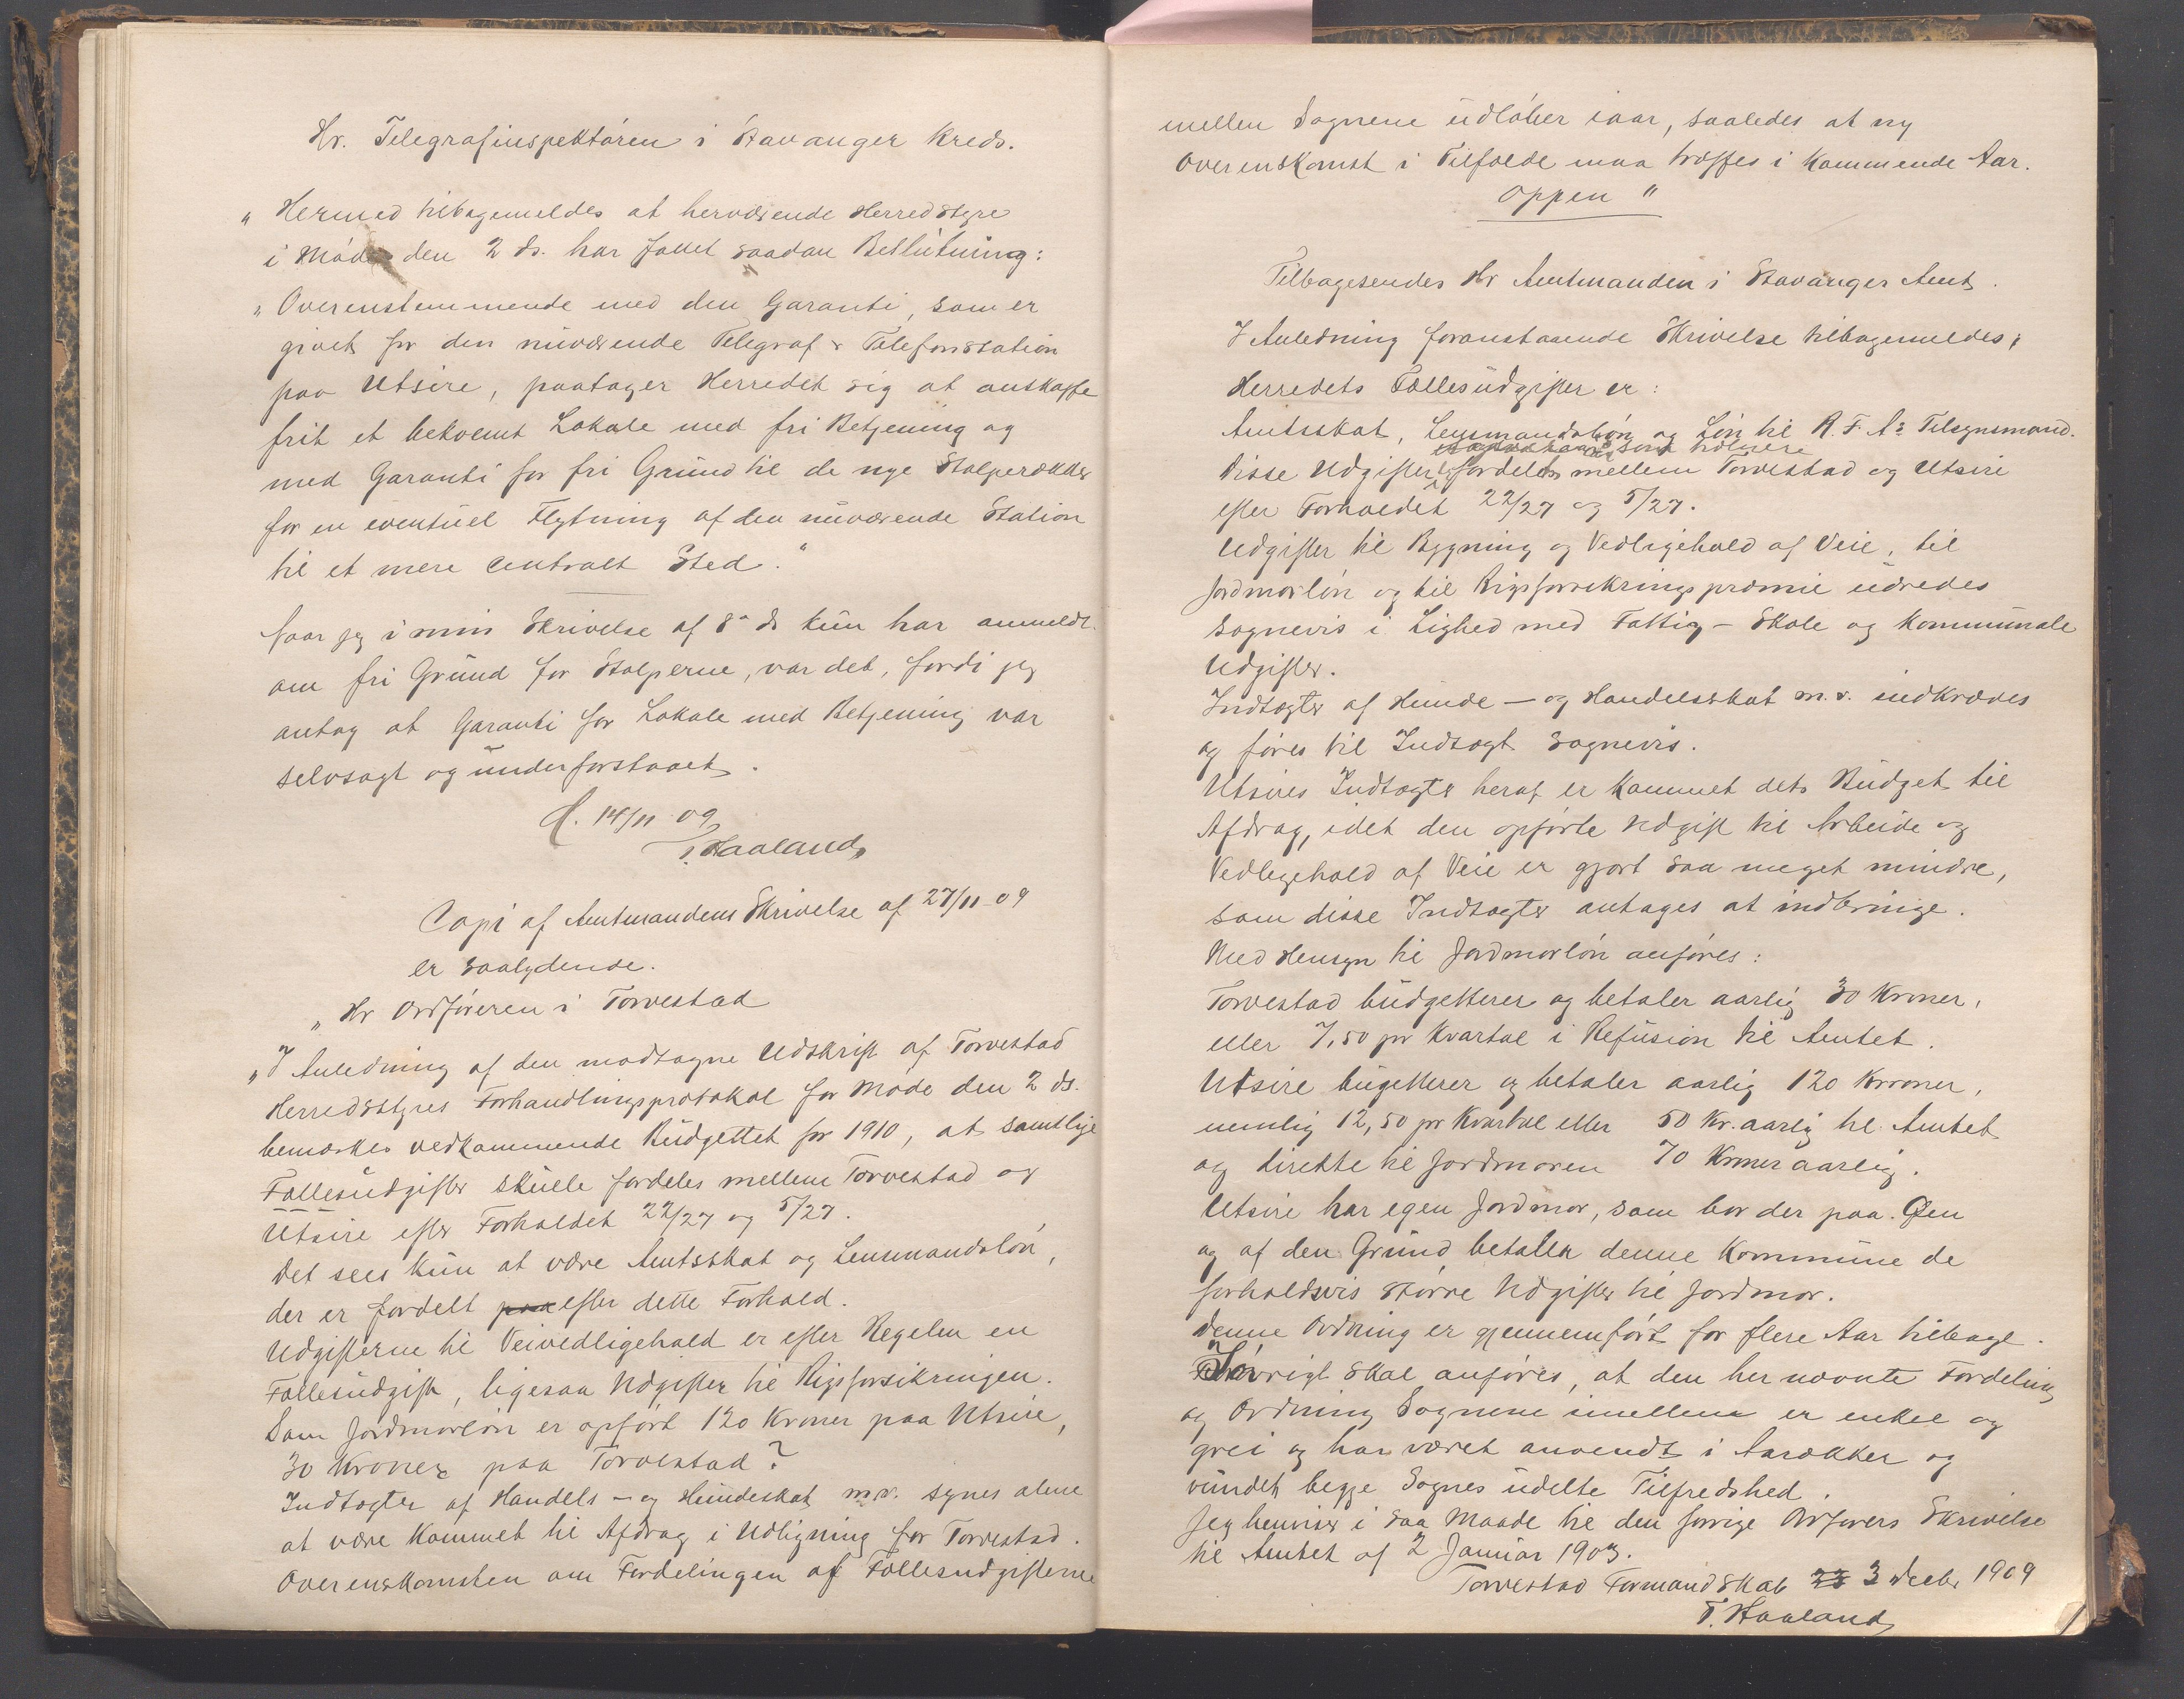 Hr. Telegrafinspektøren i Stavanger Kreds.
"Hermed tilbagemeldes at herværende Herredstyre
i Møde den 2 ds. har fattet saadan Beslutning:
"Overenstemmende med den Garanti, som er
givet for den nuværende Telegraf & Telefonstation
paa Utsire, paatager Herredet sig at anskaffe
frit et bekvemt Lokale med fri Betjening og
med Garanti for fri Grund til de nye Stolperækker
for en eventuel Flytning af den nuværende Station
til et mere centralt Sted."
Naar jeg i min Skrivelse af 8de ds kun har anmeldt
om fri Grund for Stolperne, var det, fordi jeg
antog at Garanti for Lokale med Betjening var
selvsagt og underforstaaet.
14/11 09
T. Haaland
Copi af Amtmandens Skrivelse af 27/11 09
er saalydende.
"Hr Ordføreren i Torvestad
"I Anledning af den modtagne Udskrift af Torvestad
Herredsstyres Forhandlingsprotokol for Møde den 2 ds.
bemærkes vedkommende Budgettet for 1910, at samtlige
Fællesudgifter skulle fordeles mellem Torvestad og
Utsire efter Forholdet 22/27 og 5/27.
Det sees kun at være Amtsskat og Lensmandsløn,
der er fordelt paa efter dette Forhold.
Udgifterne til Veivedligehold er efter Regelen en
Fællesudgift, ligesaa Udgifter til Rigsforsikringen.
Som Jordmorløn er opført 120 Kroner paa Utsire,
30 Kroner paa Torvestad?
Indtægter af Handels- og Hundeskat m.v. synes alene
at være kommet til Afdrag i Udligning for Torvestad.
Overenskomsten om Fordelingen af Fællesudgifterne
mellem Sognene udløber iaar, saaledes at ny
Overenskomst i Tilfælde maa træffes i kommende Aar.
Oppen"
Tilbagesendes Hr Amtmanden i Stavanger Amt.
I Anledning foranstaaende Skrivelse tilbagemeldes,
Herredets Fællesudgifter er:
Amtsskat, Lensmandsløn og Løn til R. F. As Tilsynsmand.
som tidligere
Disse Udgifter fordeles mellem Torvestad og Utsire
efter Forholdet 22/27 og 5/27.
Udgifter til Bygning og Vedligehold af Veie, til
Jordmorløn og til Rigsforsikringspræmie udredes
sognevis i Lighed med Fattig- Skole og Kommunale
Udgifter.
Indtægter af Hunde- og Handelsskat m.v. indkræves
og føres til Indtægt sognevis.
Utsires Indtægter heraf er kommet dets Budget til
Afdrag, idet den opførte Udgift til Arbeide og
Vedligehold af Veie er gjort saa meget mindre,
som disse Indtægter antages at indbringe.
Med Hensyn til Jordmorløn anføres:
Torvestad budgetterer og betaler aarlig 30 Kroner,
eller 7,50 pr Kvartal i Refusion til Amtet.
Utsire bugetterer og betaler aarlig 120 Kroner,
nemlig 12,50 pr Kvartal eller 50 Kr. aarlig til Amtet
og direkte til Jordmoren 70 Kroner aarlig.
Utsire har egen Jordmor, som bor der paa Øen
og af den Grund betaler denne Kommune de
forholdsvis større Udgifter til Jordmor.
Denne Ordning er gjennemført for flere Aar tilbage.
Iøvrigt skal anføres, at den her nævnte Fordeling
og Ordning Sognene imellem er enkel og
grei og har været anvendt i Aarækker og
vundet begge Sognes udelte Tilfredshed.
Jeg henviser i saa Maade til den forrige Ordførers Skrivelse
til Amtet af 2 Januar 1903.
Torvestad Formandskab 3 Decbr 1909
T. Haaland